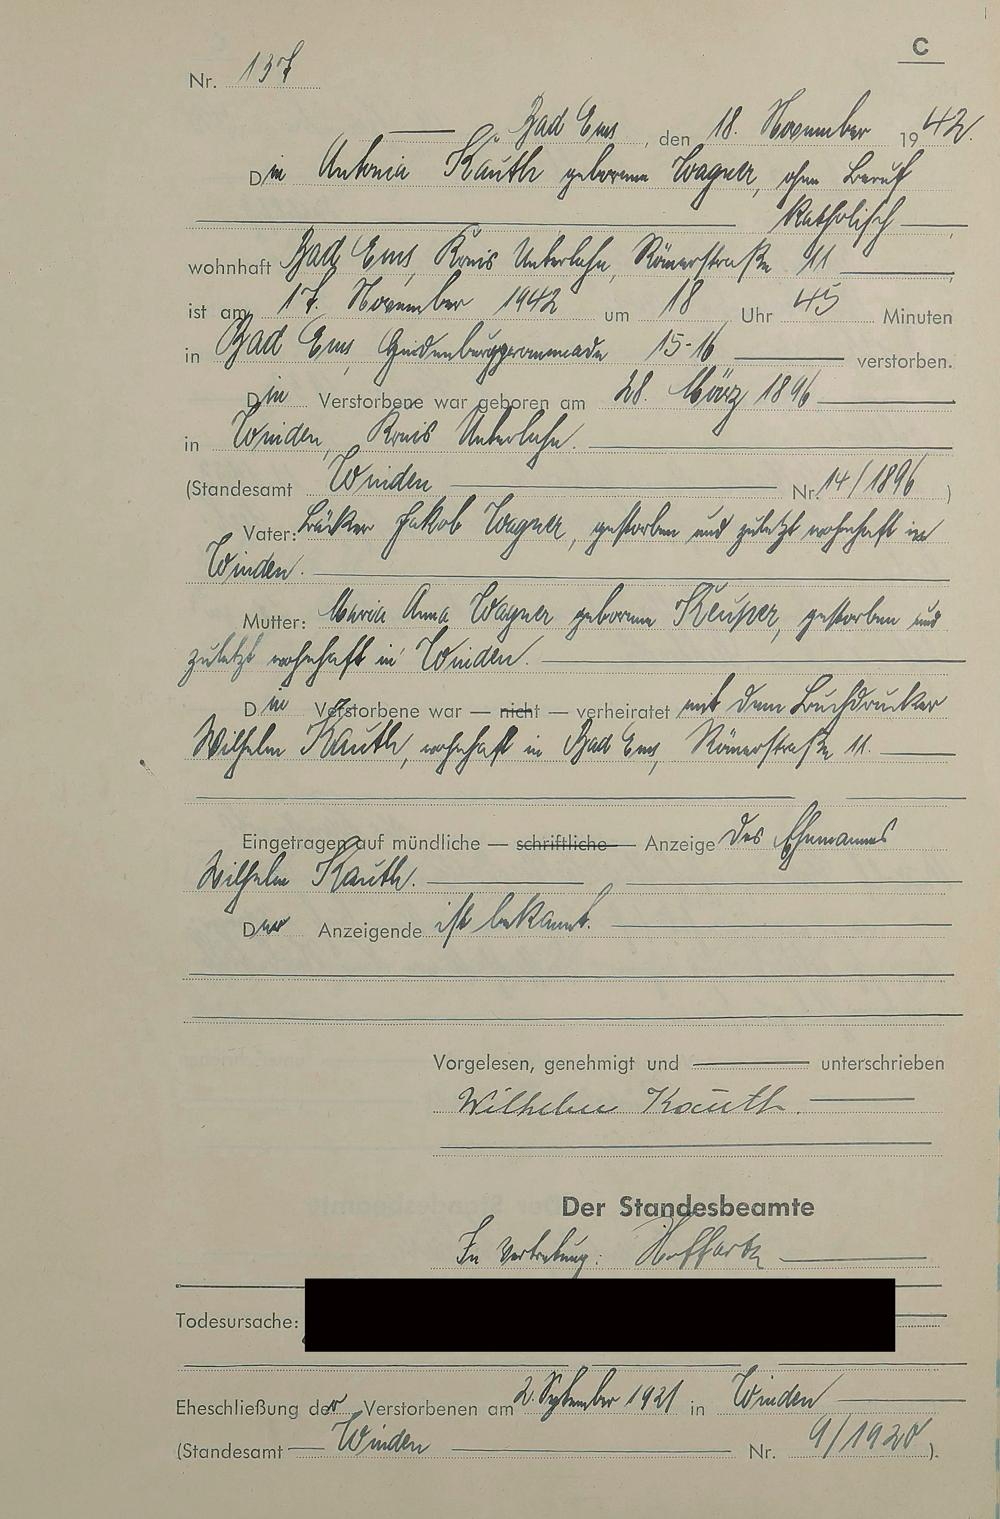 C
Nr. 137
Bad Ems, den 18. November 1942.
Die Antonia Kauth geborene Wagner, ohne Beruf
Katholisch
wohnhaft Bad Ems, Kreis Unterlahn, Römerstraße 11
ist am 17. November 1942 um 18 Uhr 45 Minuten
in Bad Ems, 15-16 verstorben.
Die Verstorbene war geboren am 28. März 1896
in Winden, Kreis Unterlahn.
(Standesamt Winden Nr. 14/1896)
Vater: Bäcker Jakob Wagner, gestorben und zuletzt wohnhaft in
Winden.
Mutter: Maria Anna Wagner geborene Keuper, gestorben und
zuletzt wohnhaft in Winden.
Die Verstorbene war — nicht — verheiratet mit dem Buchdrucker
Wilhelm Kauth, wohnhaft in Bad Ems, Römerstraße 11.
Eingetragen auf mündliche — schriftliche — Anzeige des Ehemannes
Wilhelm Kauth.
Der Anzeigende ist bekannt.
Vorgelesen, genehmigt und unterschrieben
Wilhelm Kauth.
Der Standesbeamte
In Vertretung:
Todesursache:
Eheschließung der Verstorbenen am 2. September 1921 in Winden
(Standesamt Winden Nr. 9/1920).